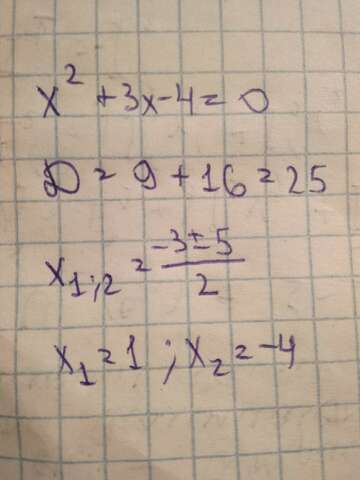 x² + 3x - 4 = 0
D = 9 + 16 = 25
x₁;₂ = (-3 ± 5)/2
x₁ = 1 ; x₂ = -4